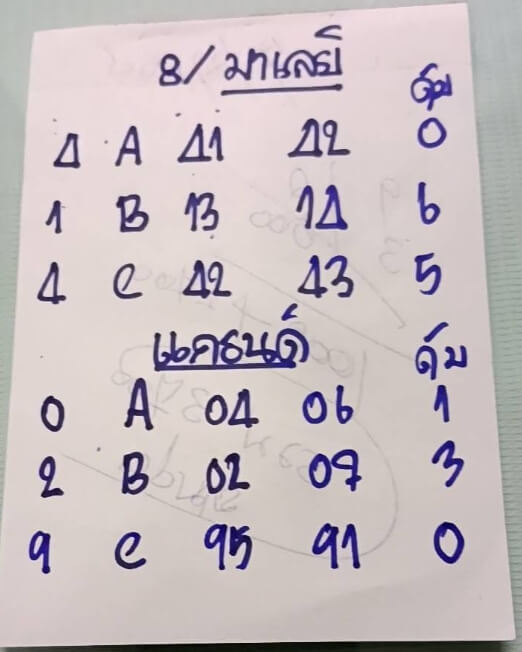 8/ มาเลย์
ดับ
4 A 41 42 0
1 B 13 14 6
4 C 42 43 5
แคธนด์ ดับ
0 A 04 06 1
2 B 02 07 3
9 C 95 91 0